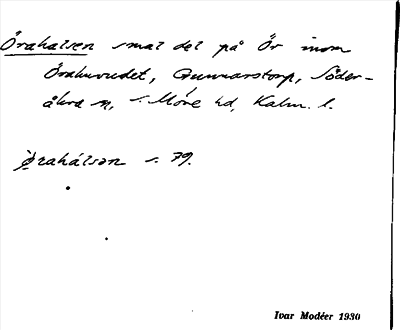 Örahalsen smal del på Ör inom
Örahuvudet, Gunnarstorp, Söder-
åkra sn, s. Möre hd, Kalm. l.
Örahálsən s. 79.
Ivar Modéer 1930